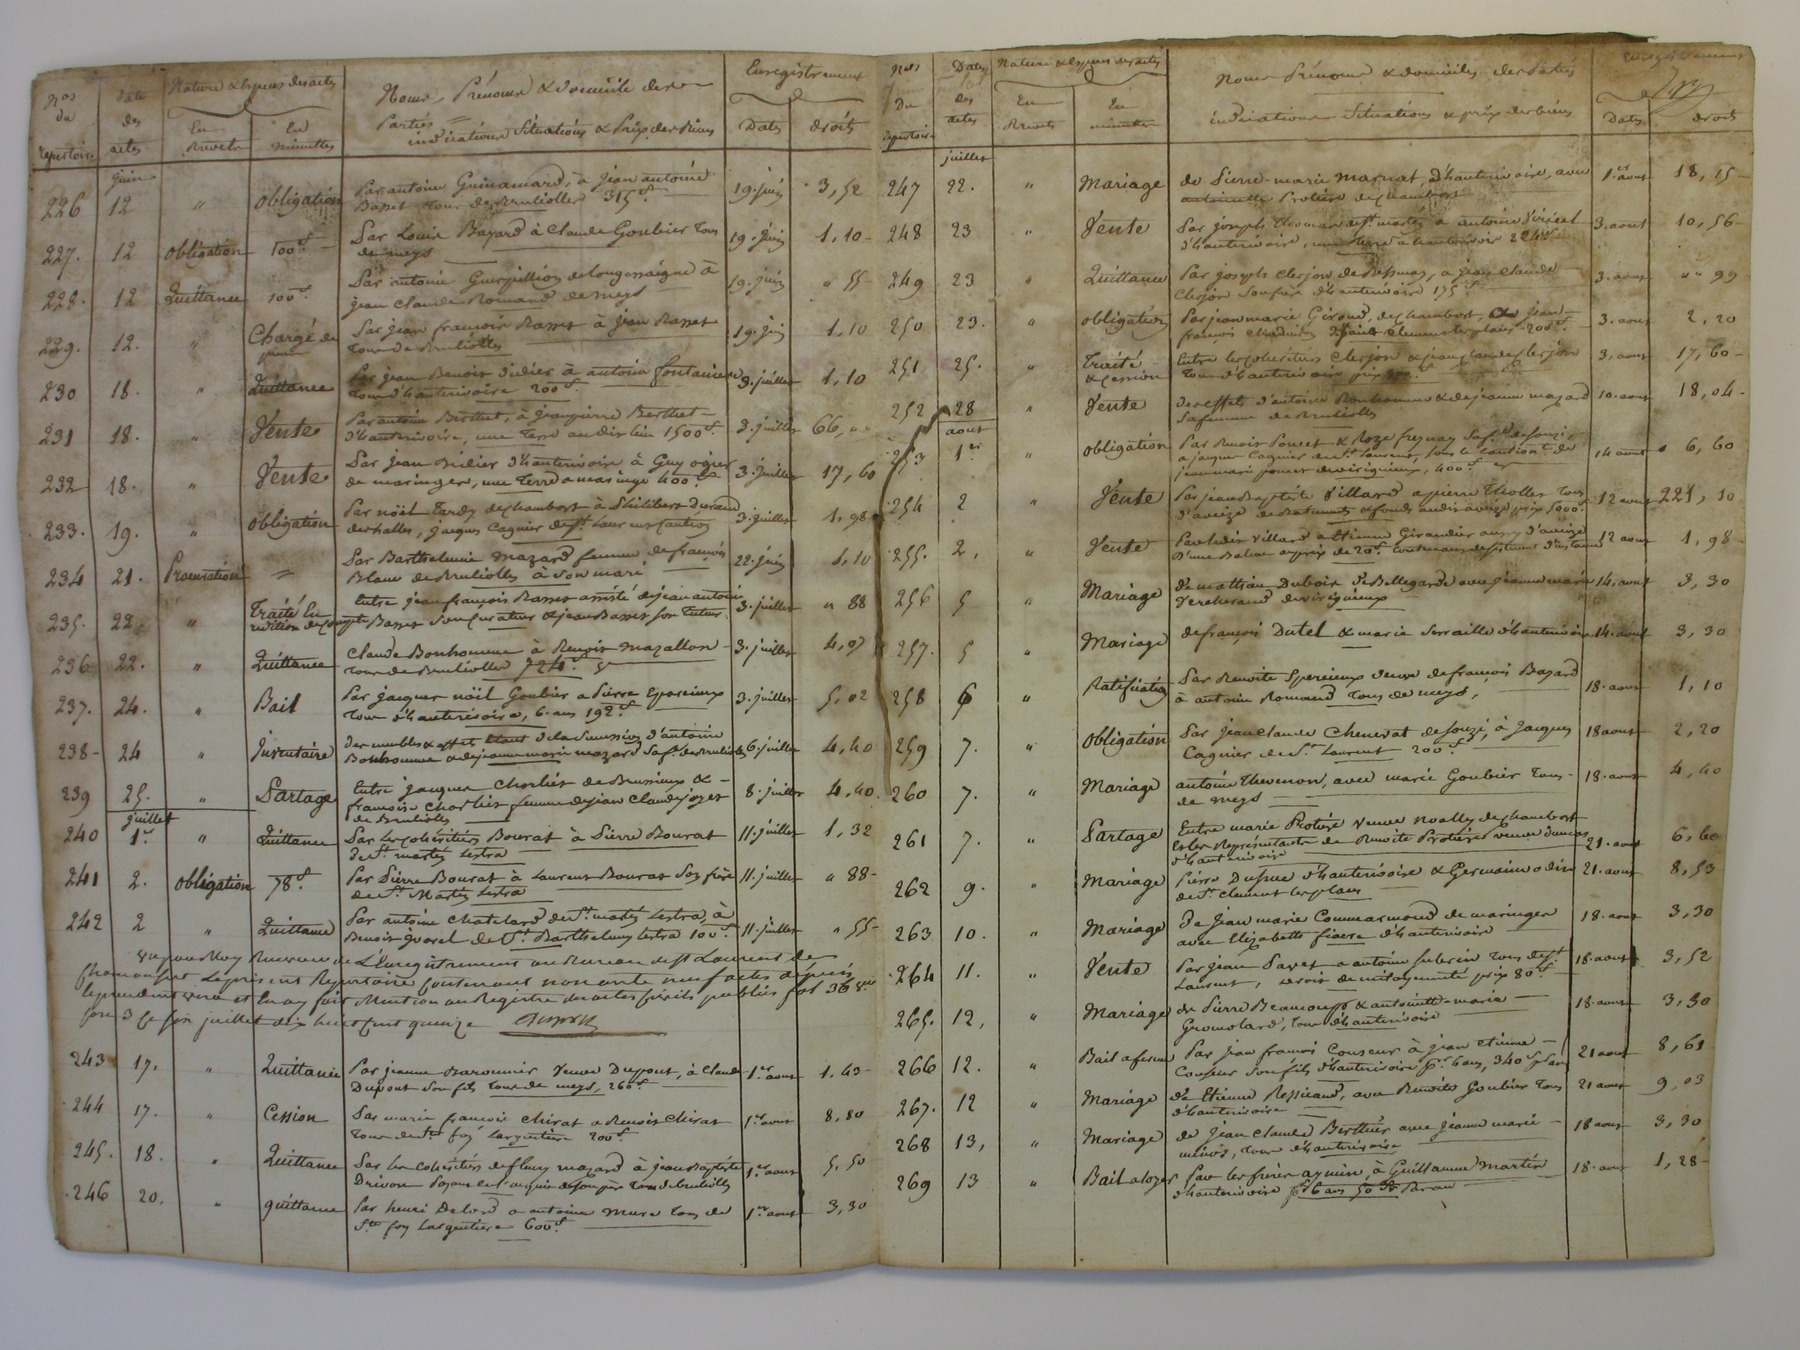 Nos du repertoire
date des actes
Nature & Especes des actes
En Brevets
En minuttes
Noms, Prénoms & domicile des Parties
indications Situations & Prix des Biens
Enregistrement
Dates
droits
juin
226 12 " obligation Par antoine Guinamard, à jean antoine 19. juin 3,52
Basset tous de Brulioller 315f
227. 12 obligation 100f Par Louis Bazard à Claude Goubier tous 19. juin 1,10
de meys
228. 12 Quittance 100f Par antoine Guerpillion de longessaigne à 19. juin " 55
jean claude Romand de meys
229. 12. " Chargé de Par jean françois Basset à jean Basset 19. juin 1,10
tous de Brulioller
230 18. " Quittance Par jean Benoit didier à antoine fontaniere 3. juillet 1,10
tous d'hauterivoire 200f
231 18. " Vente Par antoine Berthet, à jean pierre Berthet 3. juillet 66,
d'hauterivoire, une terre au dit lieu 1500f
232 18. " Vente Par jean Didier d'hauterivoire à Guy ogier 3. juillet 17,60
de maringes, une terre a maringe 400f
233. 19. " obligation Par nöel tardy de chambost à Philibert Durand 3. juillet 1,98
des halles, jacques Cagnier de St Laurent caution
234 21. Procuration = Par Barthelemie mazard femme de françois 22. juin 1,10
Blanc de Brulioller à son mari
235. 22 " Traité En Entre jean françois Basset assisté de jean antoine 3. juillet " 88
redition de compte Basset son curateur & jean Basset son tuteur
236 22. " Quittance Claude Bonhomme à Benoit mazallon 3. juillet 4,
tous de Brulioller
237. 24. " Bail Par jacques nöil Goubier a Pierre Eparcieux 3. juillet 5,02
tous d'hauterivoire, 6. ans 192f
238 24 " Inventaire des meubles & effets de la sucession d'antoine 6. juillet 4,40
Bonhomme & de jeanne marie mazard sa fe de Brulioller
239 25. " Partage Entre jacques Charlier de Brussieux & 8. juillet 4,40
françoise Charlier femme de jean claude joyet
de Brulioller
juillet
240 1er " Quittance Par les cohéritiers Bourat à Pierre Bourat 11. juillet 1,32
de St martin Lestra
241 2. obligation 78f Par Pierre Bourat à Laurent Bourat son frère 11. juillet " 88
de St Martin Lestra
242 2 " Quittance Par antoine Chatelard de St martin Lestra, à 11. juillet " 55
Benoit jvorel de St Barthelemy Lestra 100f
Vu par Moy Receveur de L'Enregistrement au Bureau de St Laurent de
Chamousset Le présent Repertoire contenant nonante neuf actes depuis
le précédent visa et en ay fait Mention au Registre des actes Civils publics fol 36
Case 3 Ce juillet dix huit cent quinze
243 17. " Quittance Par jeanne Baronnier Veuve Dupont, à Claude 1er. aout 1,43
Dupont son fils tous de meys, 260f
244 17. " Cession Par marie françoise Chirat a Benoit Chirat 1er. aout 8,80
tous de Ste foy Largentiere 200f
245. 18. " Quittance Par les Cohéritiers de fleury mazard à jean Baptiste 1er. aout 5,50
Drivon tous de Brulioller
246 20. " quittance Par henri Delord a antoine Mure tous de 1er. aout 3,30
Ste foy Largentiere 600f
Nos Du Repertoire
Dates des actes
Nature & Especes des actes
En Brevets
En minuttes
Noms Prénoms & domiciles des Parties
indications Situations & prix des biens
Enregistrement
Dates
droits
juillet
247 22. " Mariage de Pierre-marie Marnat, d'hauterivoire, avec 1er. aout 18,15
antoinette Protiere de chambost
248 23 " Vente Par joseph thomas de St martin a antoine Viricel 3. aout 10,56
d'hauterivoire, une terre a hauterivoire 224f
249 23 " Quittance Par joseph Clerjon de , a jean claude 3. aout " " 99
Clerjon son frere d'hauterivoire 175f
250 23. " obligation Par jean marie Giroud, de chambost, a jean 3. aout 2,20
françois de saint clement les places 200f
251 25. " Traité & cession Entre les cohéritiers Clerjon & jean claude Clerjon 3. aout 17,60
tous d'hauterivoire prix
252 28 " Vente des effets d'antoine Bonhomme & de jeanne mazard 10. aout 18,04
sa femme de Brulioller
aout
253 1er " obligation Par Benoit Poncet & Roze freynay sa fe de souzi 14 aout 6,60
a jacques Cagnier de St Laurent, sous le caution de
jean marie poncet de virigneux, 400f
254 2 " Vente Par jean Baptiste Villard a pierre tholler tous 12 aout 221,10
d'aveize de Batiments & fonds audit aveize prix 5000f
255. 2, " Vente Par ledit Villard a Etienne Giraudier aussi d'aveize 12 aout 1,98
256 5 " Mariage De mathieu Dubois de Bellegarde avec jeanne marie 14. aout 3,30
Vercherand de virigneux
257. 5 " Mariage de françois Dutel & marie Serraille d'hauterivoire 14. aout 3,30
258 6 " Ratification Par Benoite Spercieux veuve de françois Bazard 18. aout 1,10
à antoine Romand tous de meys,
259 7. " Obligation Par jean claude Chenevat de souzi, à jacques 18 aout 2,20
Cagnier de St Laurent 200f
260 7. " Mariage antoine thevenon, avec marie Goubier tous 18. aout 4,40
de meys
261 7. " Partage Entre marie Protiere veuve noally de chambost 21. aout 6,60
Et les Representants de Benoite Protiere veuve
d'hauterivoire
262 9. " Mariage Pierre Dufrue d'hauterivoire & Germaine odin 21. aout 8,53
de St clement les places
263 10. " Mariage De jean marie Commarmond de maringes 18. aout 3,30
avec Elizabeth fiavre d'hauterivoire
264 11. " Vente Par jean Pavet a antoine fuberin tous de St 18. aout 3,52
Laurent, droit de mitoyenneté prix 80f
265. 12, " Mariage de Pierre Beaucoup & antoinette-marie 18. aout 3,30
Gromolard, tous d'hauterivoire
266 12. " Bail a ferme Par jean françois Couseur à jean Etienne 21 aout 8,61
Couseur son fils d'hauterivoire pr 6 ans, 340f par an
267. 12 " Mariage de Etienne Ressicaud, avec Benoite Goubier tous 21 aout 9,03
d'hauterivoire
268 13, " Mariage de jean Claude Berthier avec jeanne marie 18 aout 3,30
, tous d'hauterivoire
269 13 " Bail a loyer Par les frères aymin, à Guillaume Martin 18. aout 1,28
d'hauterivoire pr 6 ans 50f Par an